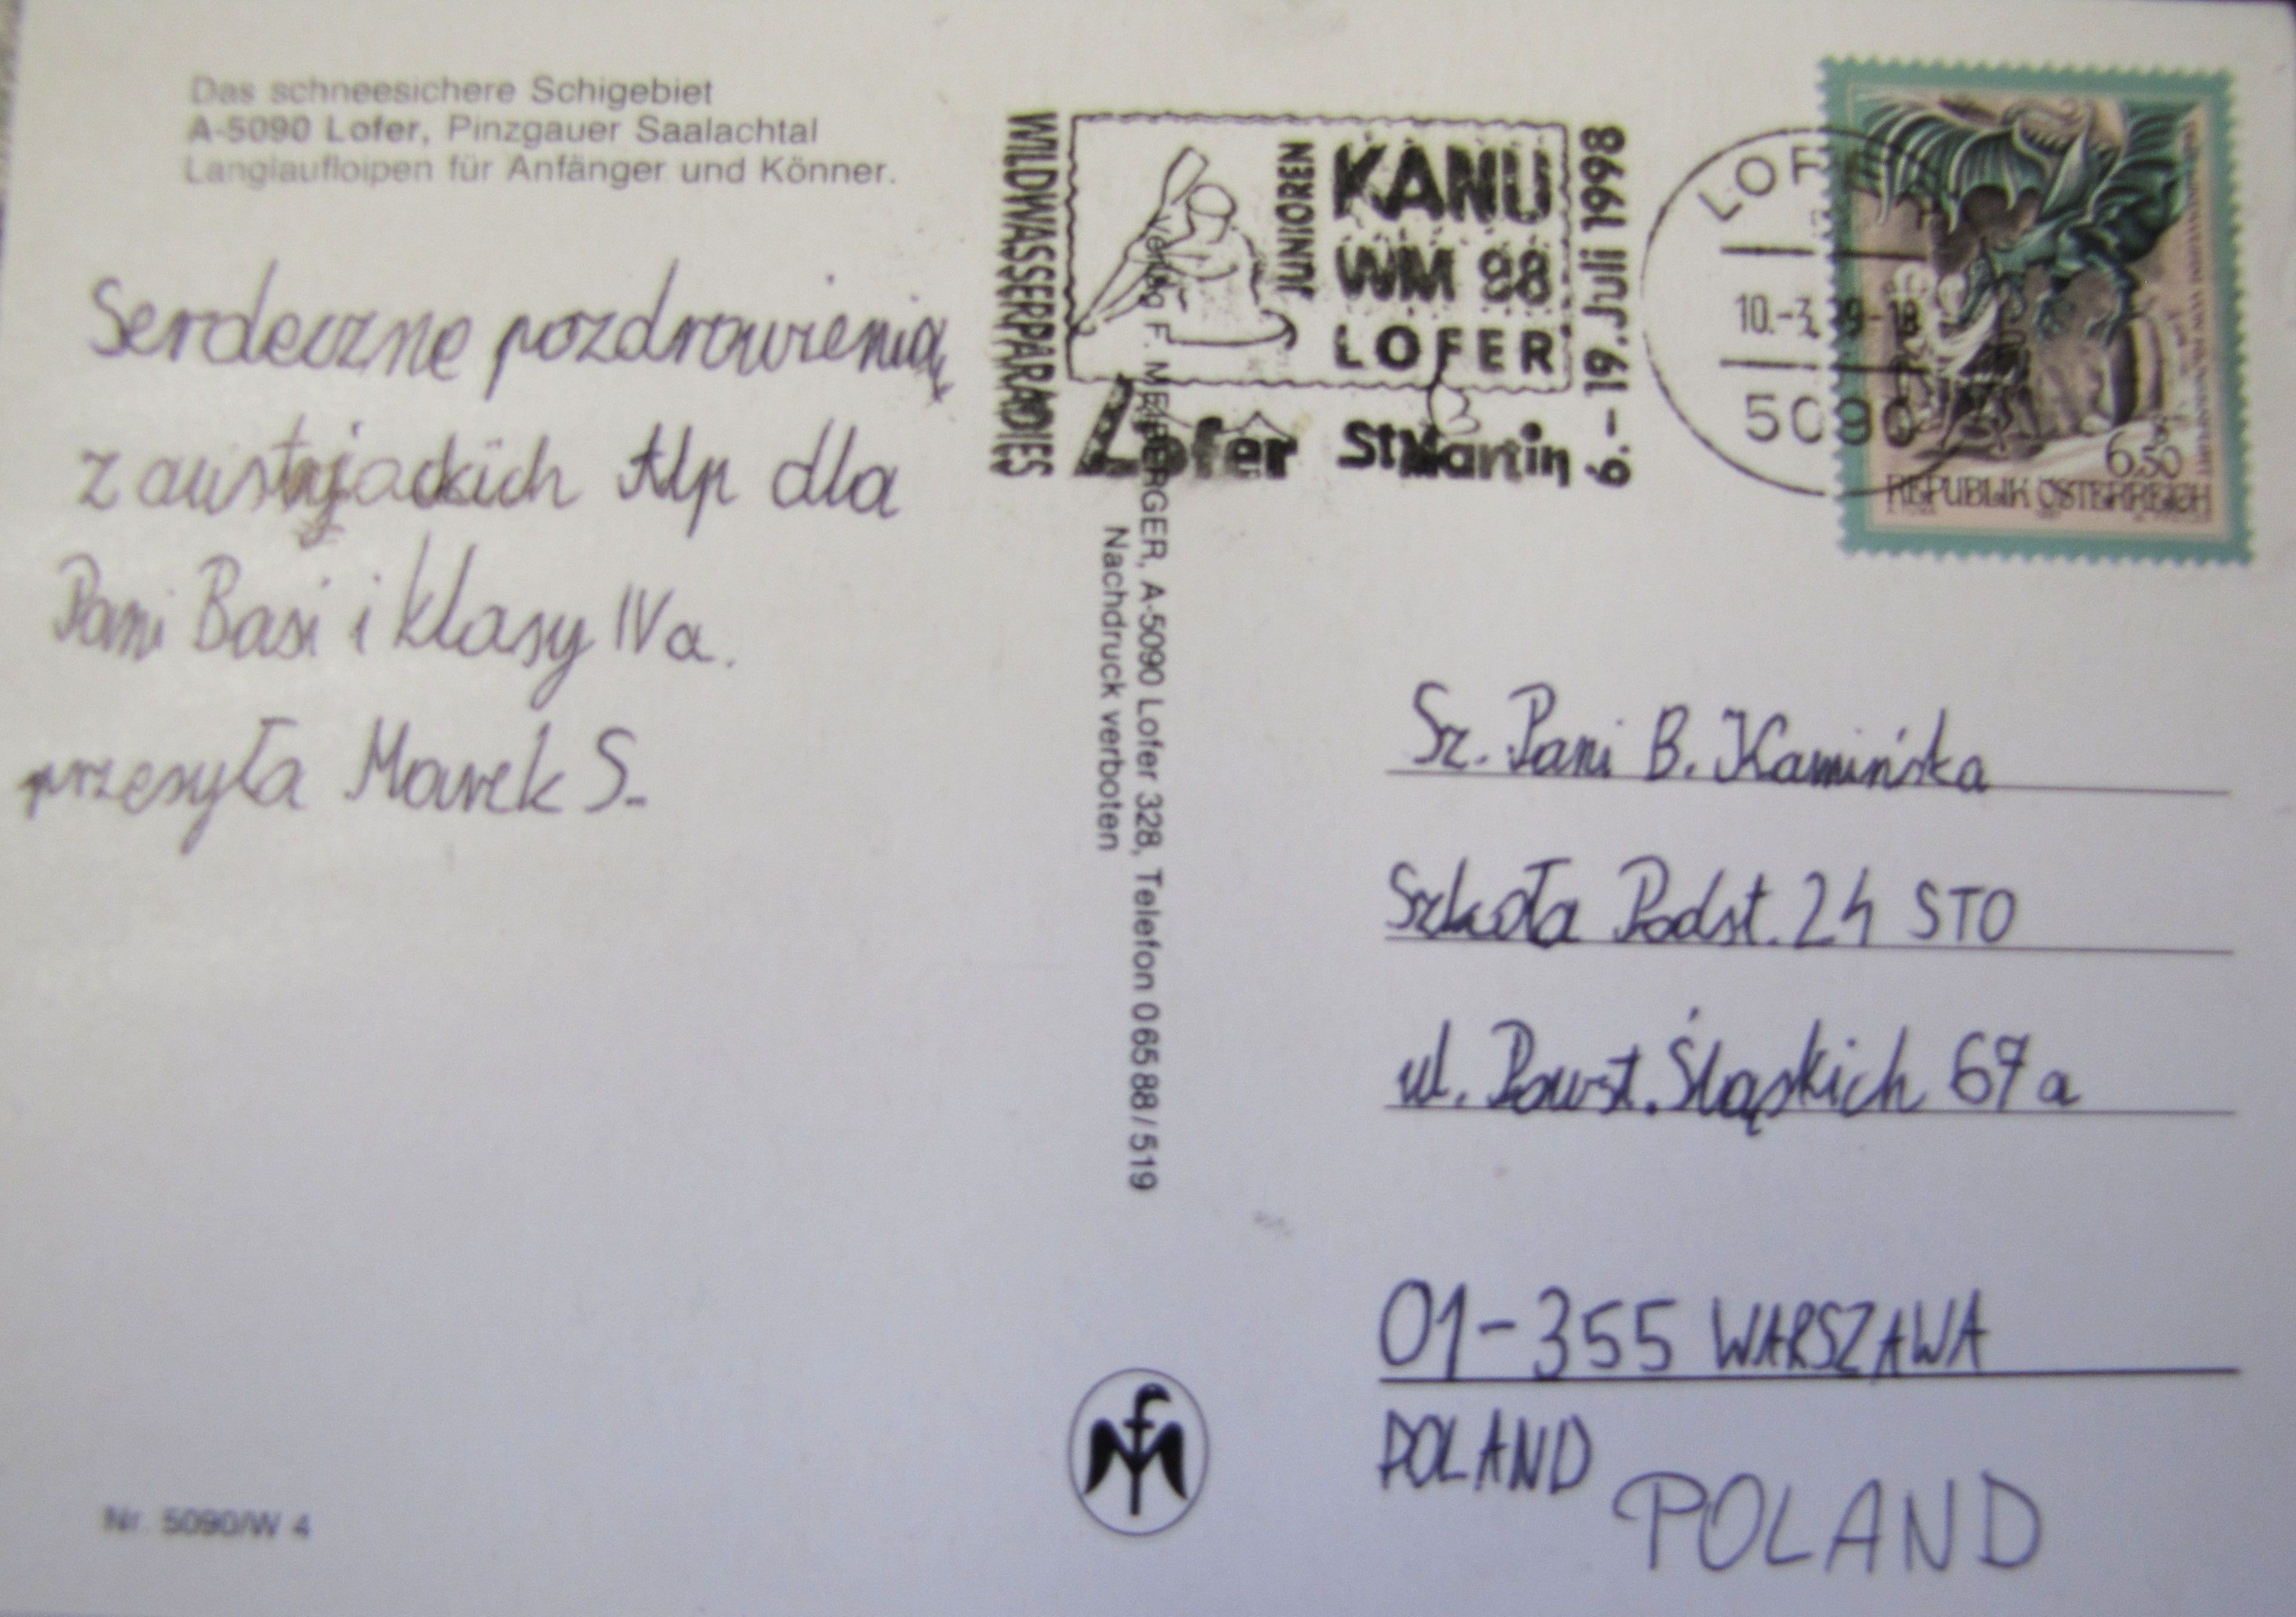 Das schneesichere Schigebiet
A-5090 Lofer, Pinzgauer Saalachtal
Langlaufloipen für Anfänger und Könner.
Serdeczne pozdrowienia
z austrjackich Alp dla
Pani Basi i klasy IVa.
przesyła Marek S.
Nr. 5090/W 4
WILDWASSERPARADIES
JUNIOREN
KANU
WM 98
LOFER
9.-19. Juli 1998
Lofer St Martin
Verlag F. MEIBERGER, A-5090 Lofer 328, Telefon 0 65 88 / 519
Nachdruck verboten
5090
6,50
REPUBLIK ÖSTERREICH
Sz. Pani B. Kamińska
Szkoła Podst. 24 STO
ul. Powst. Śląskich 67a
01-355 WARSZAWA
POLAND
POLAND